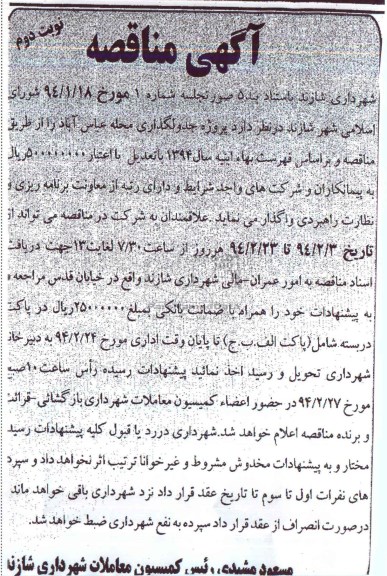 نوبت دوم
آگهی مناقصه
شهرداری شازند باستناد بند۵ صورتجلسه شماره ۱ مورخ ۹۴/۱/۱۸ شورای
اسلامی شهر شازند درنظر دارد پروژه جدولگذاری محله عباس آباد را از طریق
مناقصه و براساس فهرست بهاء ابنیه سال۱۳۹۴ باتعدیل با اعتبار ۵۰۰۰۰۰۰۰۰ریال
به پیمانکاران و شرکت های واجد شرایط و دارای رتبه از معاونت برنامه ریزی و
نظارت راهبردی واگذار می نماید .علاقمندان به شرکت در مناقصه می تواند از
تاریخ ۹۴/۲/۳ تا ۹۴/۲/۲۳ هرروز از ساعت۷/۳۰ لغایت۱۳جهت دریافت
اسناد مناقصه به امور عمران-مالی شهرداری شازند واقع در خیابان قدس مراجعه و
به پیشنهادات خود را همراه با ضمانت بانکی بمبلغ۲۵۰۰۰۰۰۰ریال در پاکت
دربسته شامل(پاکت الف.ب.ج) تا پایان وقت اداری مورخ ۹۴/۲/۲۴ به دبیرخانه
شهرداری تحویل و رسید اخذ نمائید پیشنهادات رسیده رأس ساعت۱۰صبح
مورخ ۹۴/۲/۲۷ در حضور اعضاء کمیسیون معاملات شهرداری بازگشائی-قرائت
و برنده مناقصه اعلام خواهد شد.شهرداری دررد یا قبول کلیه پیشنهادات رسیده
مختار و به پیشنهادات مخدوش مشروط و غیرخوانا ترتیب اثر نخواهد داد و سپرده
های نفرات اول تا سوم تا تاریخ عقد قرار داد نزد شهرداری باقی خواهد ماند
درصورت انصراف از عقد قرار داد سپرده به نفع شهرداری ضبط خواهد شد.
مسعود مشیدی رئیس کمیسیون معاملات شهرداری شازند